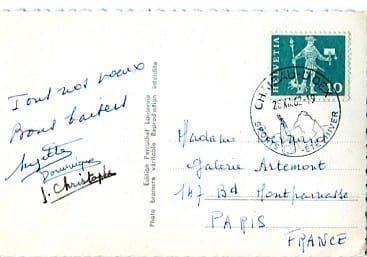 Tous nos voeux
Bons baisers
Dominique
J. Christophe
Edition Perrochet Lausanne
Photo bromure véritable Reproduction interdite
HELVETIA
10
CHATEAU-D'OEX
SPORTS ÉTÉ-HIVER
Madame
Galerie Artemont
147 Bd Montparnasse
PARIS
FRANCE